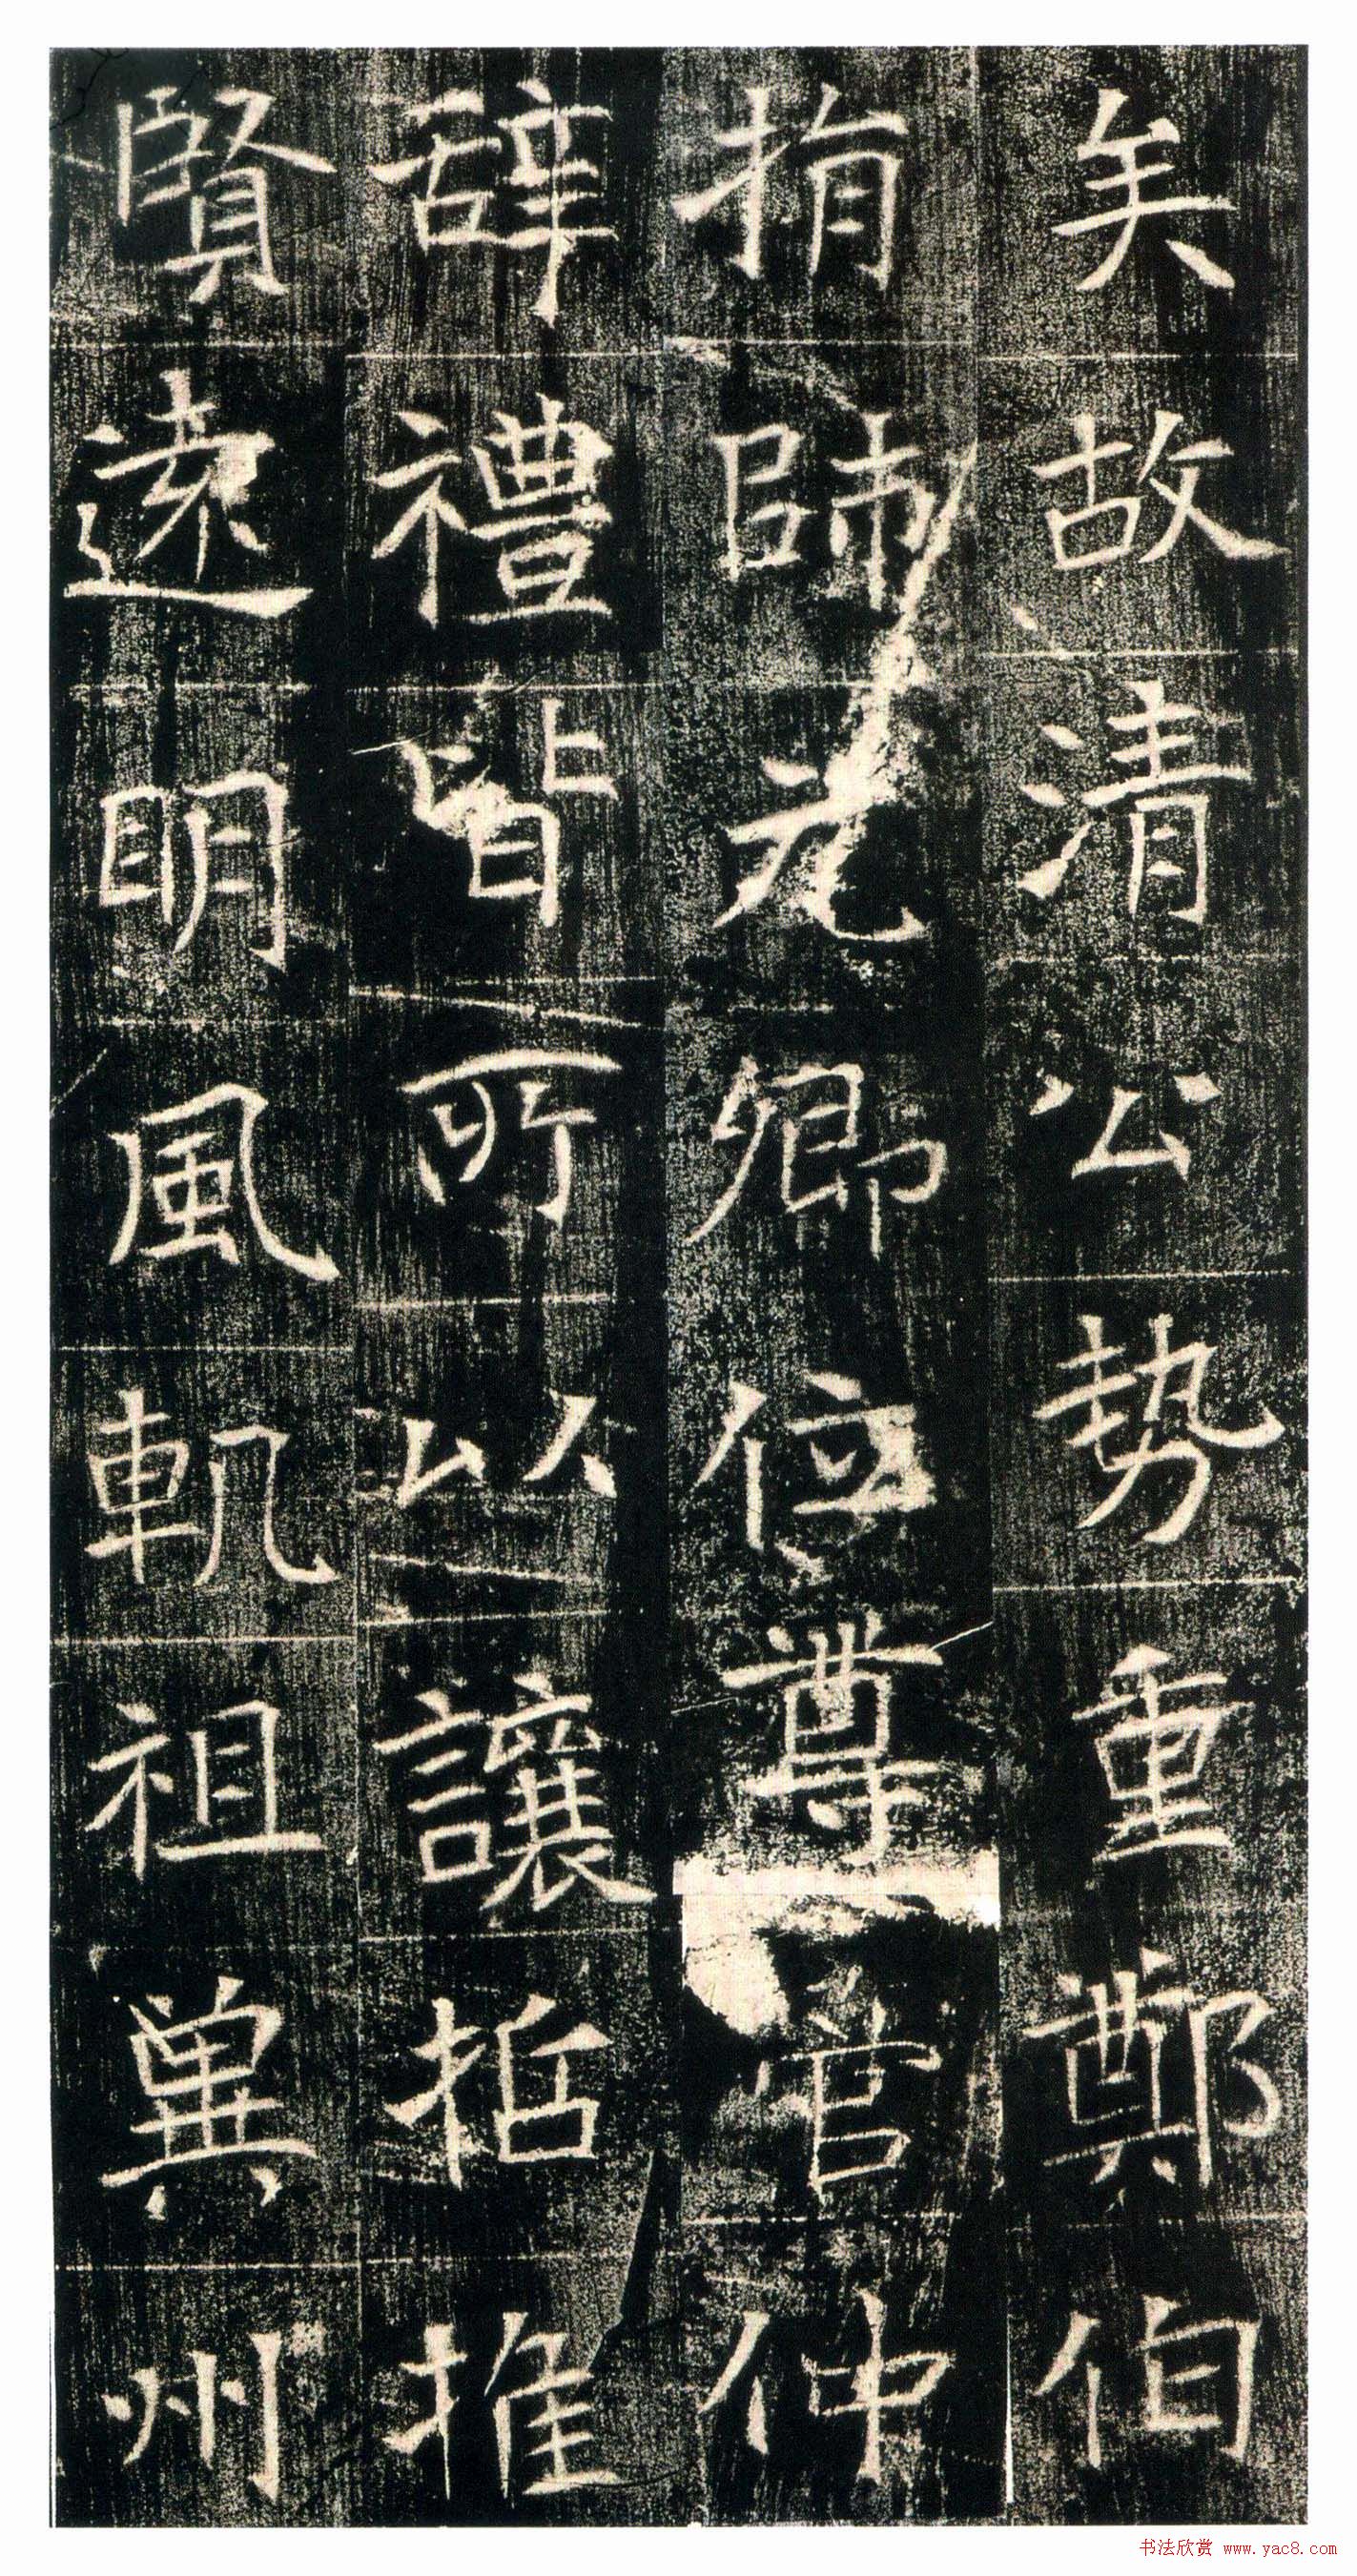 矣故清公勢重鄭伯
捐師元卿位尊管仲
辭禮皆所以讓哲推
賢遠明風軌祖冀州
书法欣赏 www.yac8.com